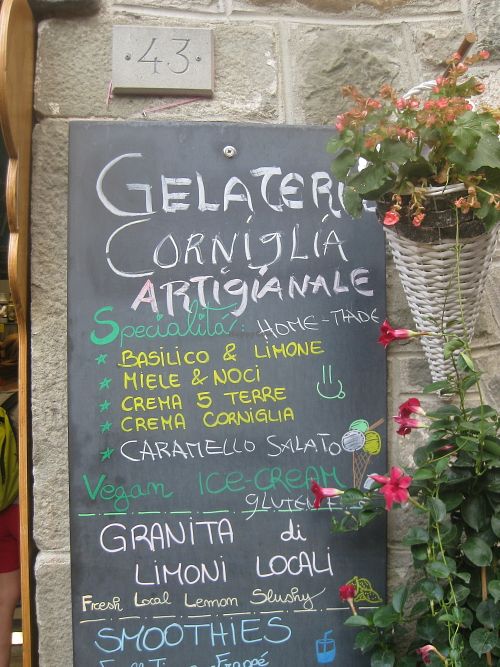 · 43 ·
GELATERI
CORNIGLIA
ARTIGIANALE
Specialità: HOME-MADE
★ BASILICO & LIMONE
★ MIELE & NOCI
★ CREMA 5 TERRE
★ CREMA CORNIGLIA
★ CARAMELLO SALATO
Vegan ICE-CREAM
GLUTEN
GRANITA di
LIMONI LOCALI
Fresh Local Lemon Slushy
SMOOTHIES
Frappé